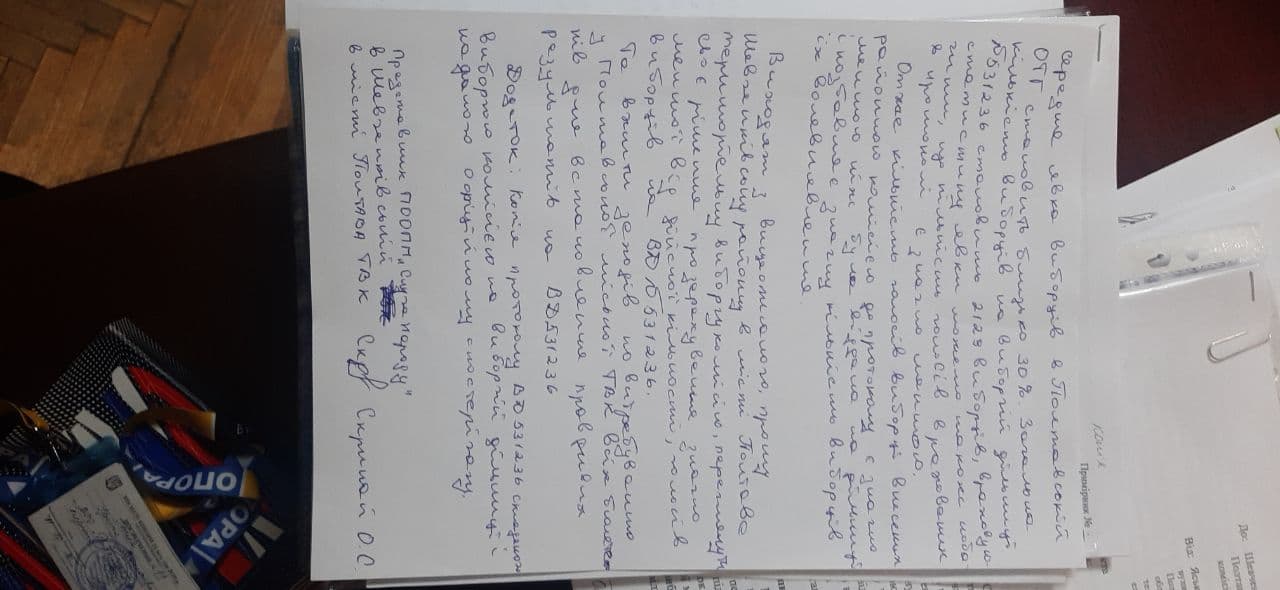 середня явка виборців в Полтавській
ОТГ становить близько 30%. Загальна
кількість виборців на виборчій дільниці
№531236 становить 2129 виборців, враховую-
статистику явки можемо також поба-
чити, що кількість голосів врахованих
в протоколі є значно меншою.
Отже кількість голосів виборців внесених
районною комісією до протоколу є значно
меншою ніж була віддана на дільниці
і позбавляє значну кількість виборців
їх волевиявлення.
Виходячи з вищевикладеного, прошу
Шевченківську районну в місті Полтава
територіальну виборчу комісію, переглянути
своє рішення про зарахування значно
меншої від дійсної кількості, голосів
виборців на ВД №531236.
Та вжити заходів по витребуванню
у Полтавської міської ТВК всіх бюлете-
нів для встановлення правдивих
результатів на ВД 531236
Додаток: Копія протоколу ВД 531236 складеного
виборчою комісією на виборчій дільниці і
наданого офіційному спостерігачу
Представник ПООПП „Слуга народу"
в Шевченківській
в місті Полтава ТВК Скрипай О.С
копія
Примірник №
До: Шевче
Полта
коміс
Від: Яськ
вул
ОПОРА
ОРА